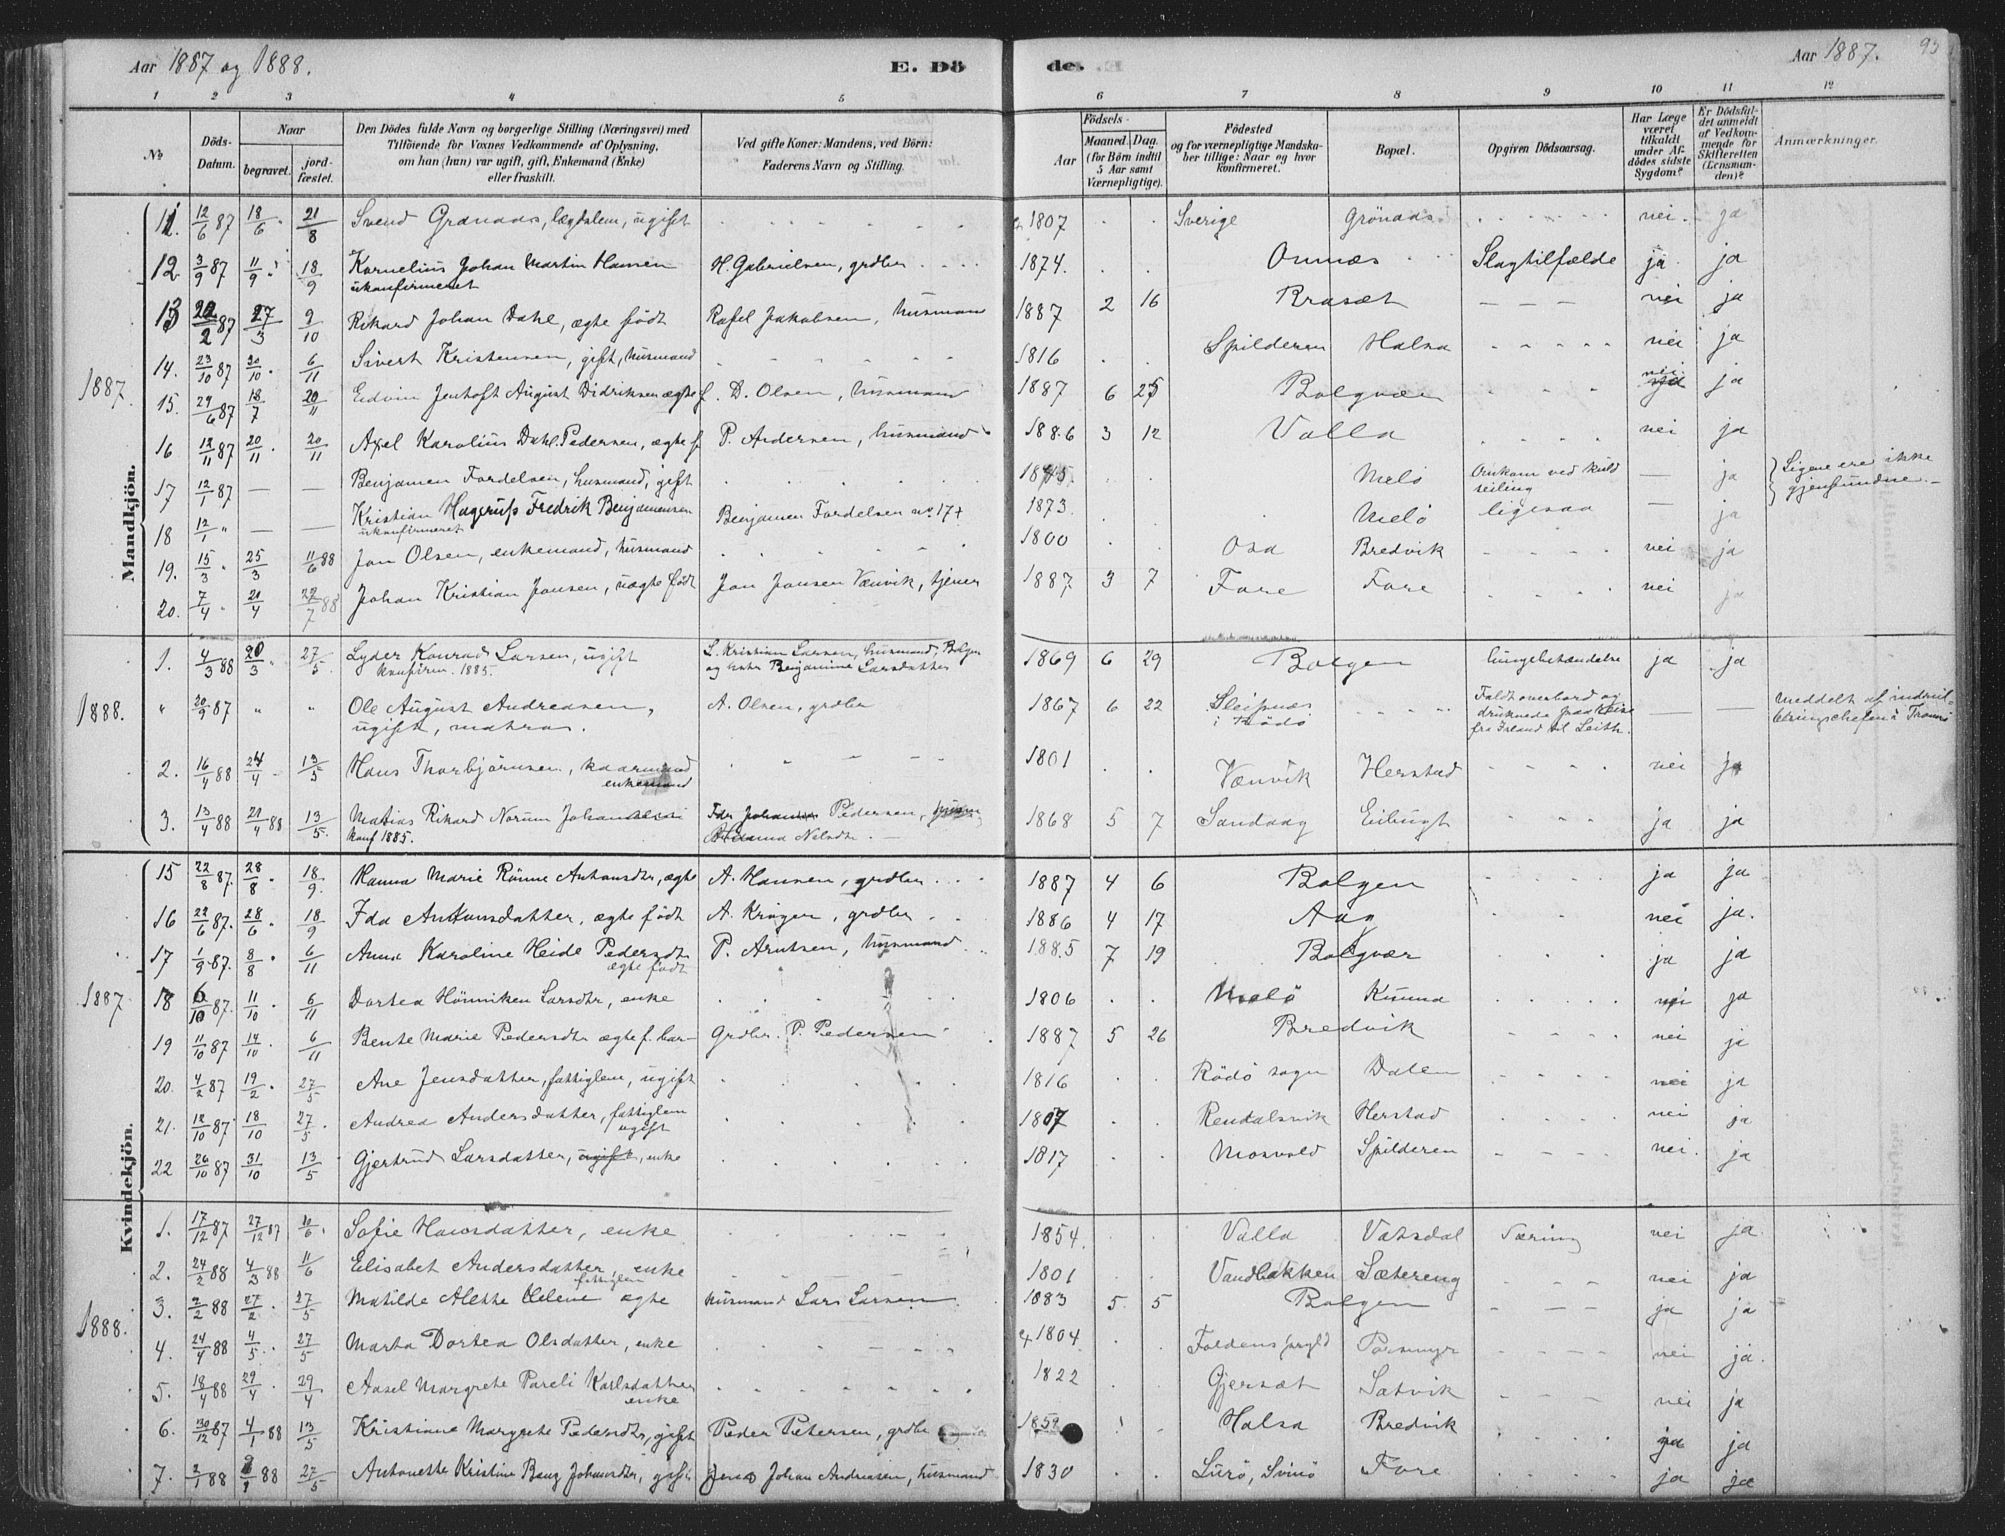 Aar 1887 og 1888.
E. Dö
de.
Aar 1887.
93
1 2 3 4 5 6 7 8 9 10 11 12
No
Döds-Datum.
Naar
begravet.
jord-fæstet.
Den Dödes fulde Navn og borgerlige Stilling (Næringsvei) med
Tilföiende for Voxnes Vedkommende af Oplysning,
om han (hun) var ugift, gift, Enkemand (Enke)
eller fraskilt.
Ved gifte Koner: Mandens, ved Börn:
Faderens Navn og Stilling.
Födsels-
Aar
Maaned. Dag.
(for Börn indtil
5 Aar samt
Værnepligtige).
Födested
og for værnepligtige Mandska-
ber tillige: Naar og hvor
konfirmeret.
Bopæl.
Opgiven Dödsaarsag.
Har Læge
været
tilkaldt
under Af-
dödes sidste
Sygdom?
Er Dödsfal-
det anmeldt
af Vedkom-
mende for
Skifteretten
(Lensman-
den)?
Anmærkninger.
Mandkjön.
1887.
11. 12/6 87 18/6 21/8 Svend Granaas, lægdslem, ugift 1807 Sverige Grönaas nei ja
12. 3/9 87 11/9 18/9 Kornelius Johan Martin Hansen H. Gabrielsen, grdbr 1874. Onnæs Slagtilfælde ja ja
ukonfirmeret
13 22/2 87 27/3 9/10 Rikard Johan Dahl, ægte födt Rafel Jakobsen, husmand 1887 2 16 Brasæt nei ja
14. 23/10 87 20/10 6/11 Sivert Kristensen, gift, husmand 1816 Spilderen Halsa nei ja
15. 29/6 87 18/7 20/11 Edvin Jentoft August Didriksen ægte f. D. Olsen, husmand 1887 6 25 Bolgvær nei ja
16 12/11 87 20/11 20/11 Axel Karolius Dahl Pedersen, ægte f P. Andersen, husmand 1886 3 12 Valla nei ja
17 12/1 87 — — Benjamen Fordelsen, husmand, gift 1845. Melö Omkom ved kuld — ja Ligene ere ikke
seiling gjenfundne. —
18 12/1 " — — Kristian Hagerup Fredrik Benjamensen Benjamen Fordelsen no. 17 1873. Melö ligesaa — ja
ukonfirmeret
19. 15/3 25/3 11/6 88 Jon Olsen, enkemand, husmand 1800 Osa Bredvik nei ja
20. 7/4 21/4 22/7 88 Johan Kristian Jonsen, uægte födt Jon Jonsen Vænvik, tjener 1887 3 7 Fore Fore nei ja
1888.
1. 4/3 88 20/3 27/5 Lyder Konrad Larsen, ugift L. Kristian Larsen, husmand, Bolgen 1869 6 29 Bolgen lungebetændelse ja ja
konfirm. 1885. og Benjamine Larsdatter
" 20/9 87 " " Ole August Andreasen, A. Olsen, grdbr 1867 6 22 Sleipnes Faldt overbord og — — Meddelt af
ugift, matros. i Rödö druknede paa Reise
fra Island til Leith.
2. 16/4 88 24/4 13/5 Hans Thorbjörnsen, kaarmand 1801 Vænvik Herstad nei ja
enkemand
3. 13/4 88 21/4 88 13/5. Matias Rikard Norum Johansen Fdr Johan Pedersen, 1868 5 7 Sandaag Eilingt ja ja
konf 1885.
Kvindekjön.
1887
15 22/8 87. 28/8 18/9. Hanna Marie Rönne Antonsdtr, ægte A. Hansen, grdbr 1887 4 6 Bolgen ja ja
16 22/6 87. 28/6 18/9 Ida Antonsdatter, ægte födt A. Krogen, grdbr 1886 4 17 Aag nei ja.
17 1/9 87. 8/8 6/11 Anna Karoline Heide Pedersdtr P. Arntsen, husmand 1885 7 19 Bolgvær ja ja
ægte födt
18 6/10 87. 11/10 6/11 Dortea Hönniken Larsdtr, enke 1806 Melö Kunna nei ja
19 11/10 87 14/10 6/11 Bente Marie Pedersdtr ægte f. bar- Grdbr. P. Pedersen 1887 5 26 Bredvik nei ja
20. 4/2 87 19/2 27/5 Ane Jensdatter, fattiglem, ugift 1816 Rödö sogn Dalen nei ja
21. 12/10 87 18/10 27/5 Andrea Andersdatter, fattiglem 1807 Rendalsvik Herstad nei ja
ugift
22 26/10 87 31/10 13/5 Gjertrud Larsdatter, ugift, enke 1817 Mosvold Spilderen nei. ja
1888.
1. 17/12 87 27/12 87 10/6 Sofie Hansdatter, enke 1854. Valla Vatsdal Tæring nei ja
2. 24/2 88 4/3 88 11/6 Elisabet Andersdatter, enke 1801 Vandbakken Sætereng nei ja
fattiglem
3. 2/2 88 27/2 27/5 Matilde Alette Helene ægte husmand Lars Larsen 1883 5 5 Bolgen ja ja
4. 24/4 88 4/5 27/5 Marta Dortea Olsdatter, enke 1804 Foldens prgld nei ja.
5. 18/4 88 29/4 29/4 Aasel Margrete Pareli Karlsdatter 1822 Gjersæt Satvik nei ja
enke
6. 30/12 87 4/1 88 13/5 Kristiane Margrete Pedersdtr, gift Peder Petersen, grdbr 1859 Halsa Bredvik ja ja
7. 2/1 88 88 27/5 Antonette Kristine Bang Johansdtr, gift Jens Johan Andreasen, husmand 1830 Lurö, Svinö Fore ja ja